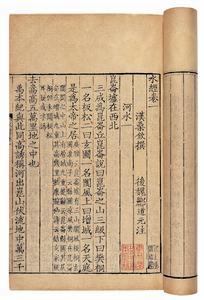 水經卷一
漢桑欽撰 後魏酈道元注
河水
崑崙墟在西北
三成為崑崙丘崑崙之山三級下曰樊桐
一名板松二曰玄圃一名閬風上曰增城一名天庭
是為太帝之居
去嵩高五萬里地之中也
禹本紀與此同高誘稱河出崑山伏流地中萬三千